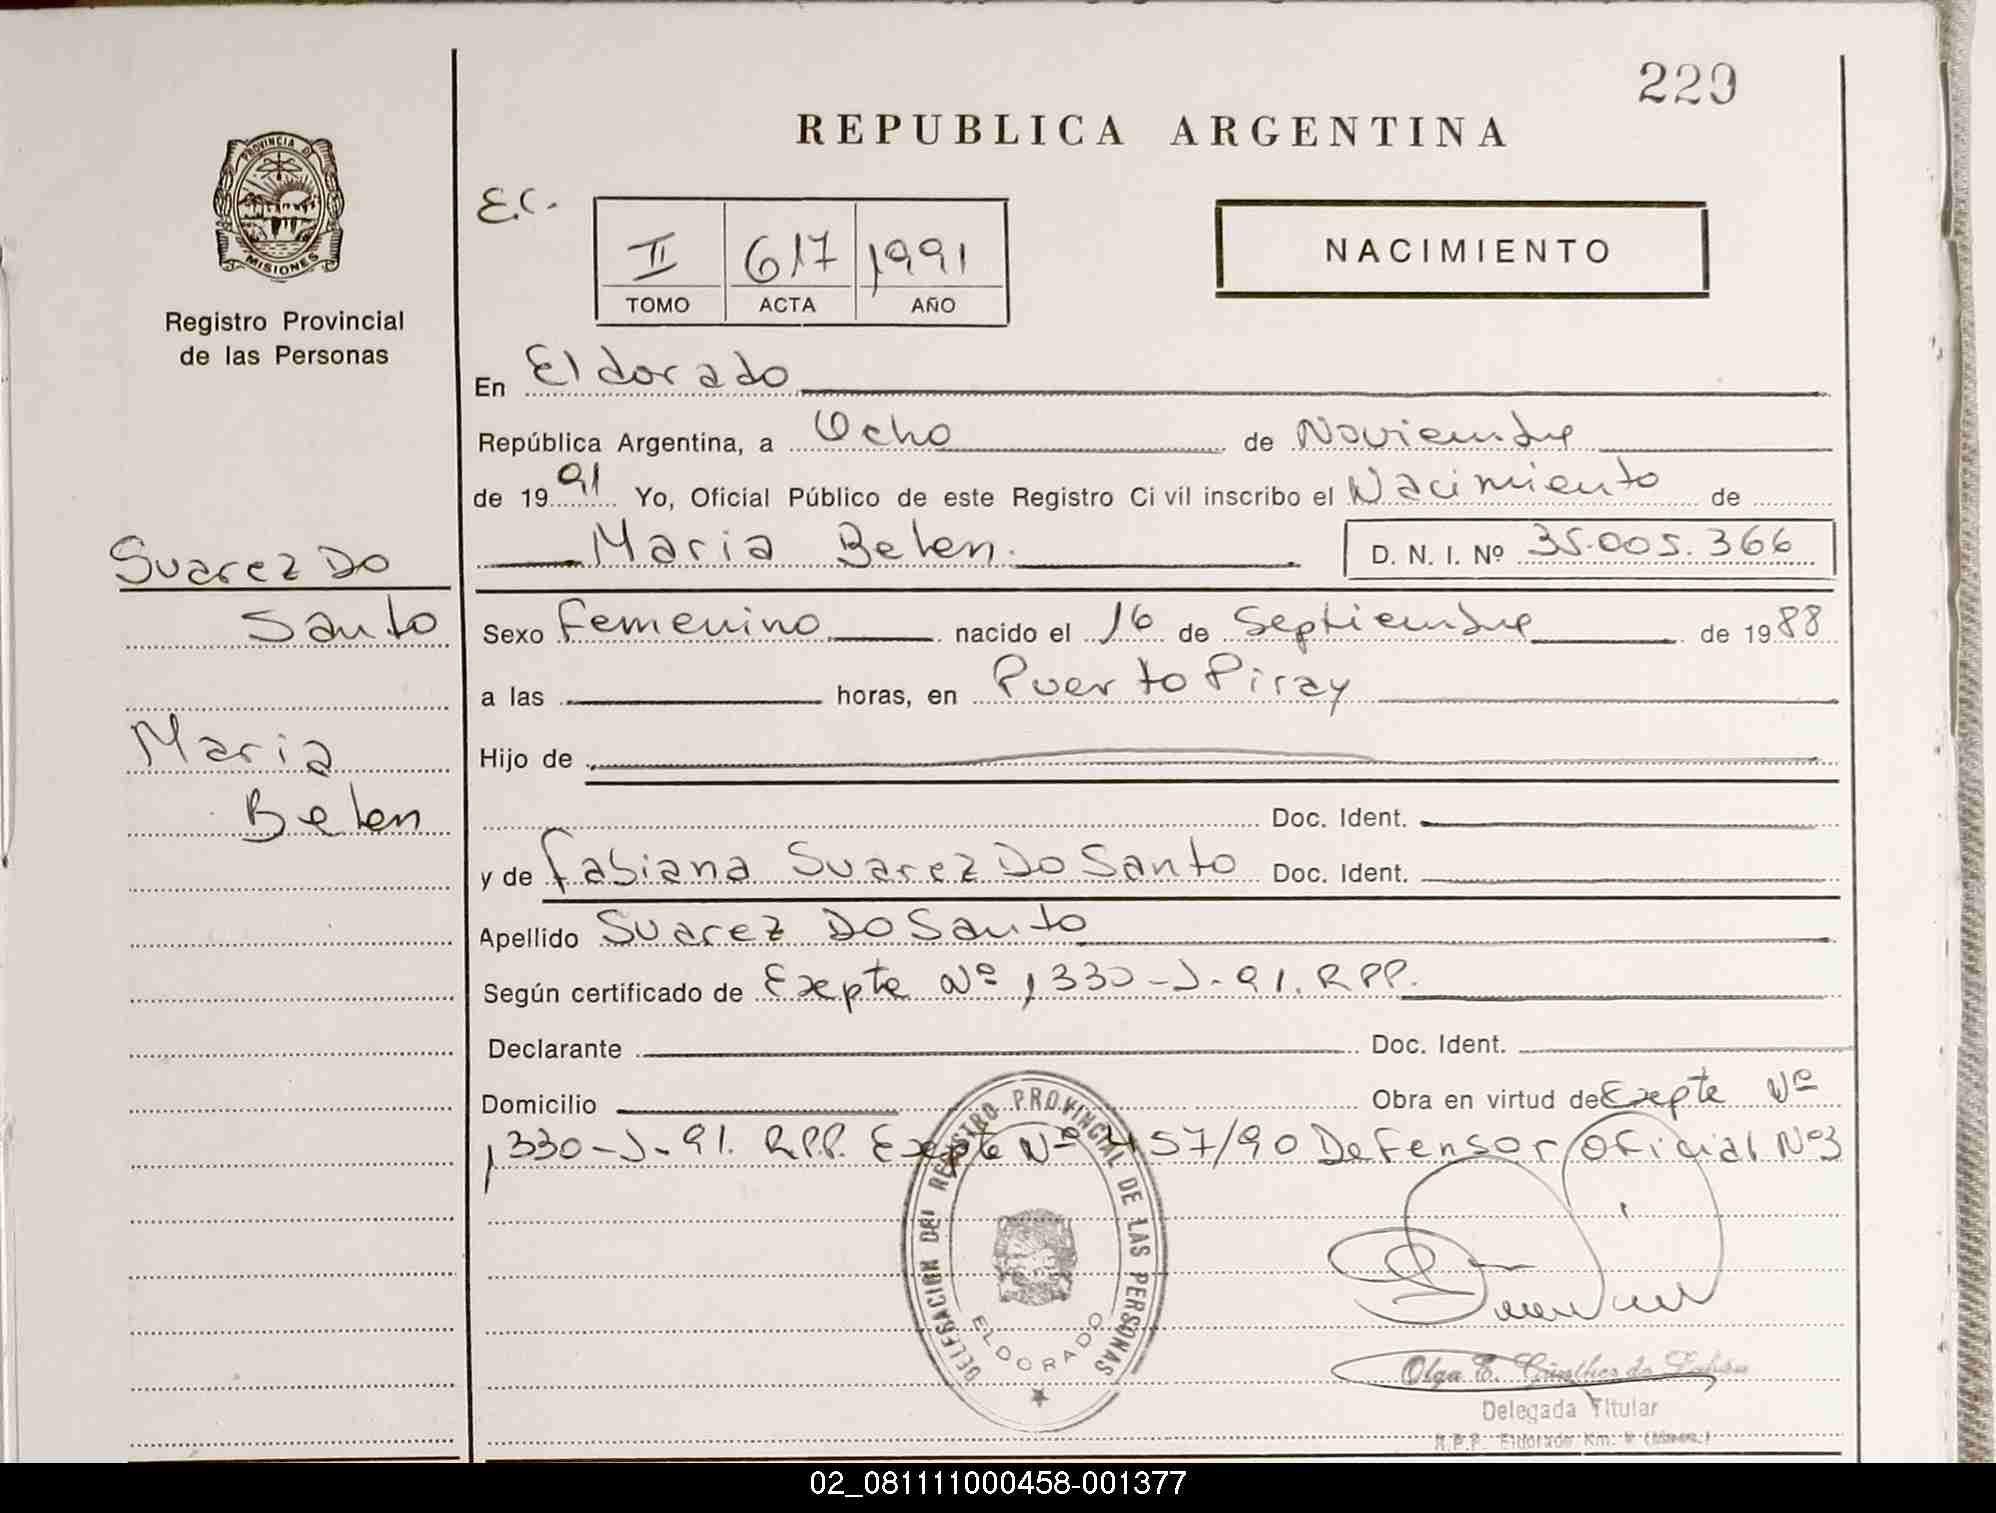 229
REPUBLICA ARGENTINA
PROVINCIA DE
MISIONES
Registro Provincial
de las Personas
E.C.
II 617 1991
TOMO ACTA AÑO
NACIMIENTO
En Eldorado
República Argentina, a Ocho de Noviembre
de 1991 Yo, Oficial Público de este Registro Ci vil inscribo el Nacimiento de
Maria Belen. D. N. I. Nº 35.005.366
Suarez Do
Santo
Maria
Belen
Sexo Femenino nacido el 16 de Septiembre de 1988
a las horas, en Puerto Piray
Hijo de
Doc. Ident.
y de Fabiana Suarez Do Santo Doc. Ident.
Apellido Suarez Do Santo
Según certificado de Expte Nº 1330-J-91. RPP.
Declarante Doc. Ident.
Domicilio Obra en virtud de Expte Nº
1330-J-91. R.P.P. Expte Nº 457/90 Defensor Oficial Nº3
DELEGACION DEL REGISTRO PROVINCIAL DE LAS PERSONAS
ELDORADO
Olga E.
Delegada Titular
R.P.P. Eldorado Km. 9 (Mnes.)
02_081111000458-001377